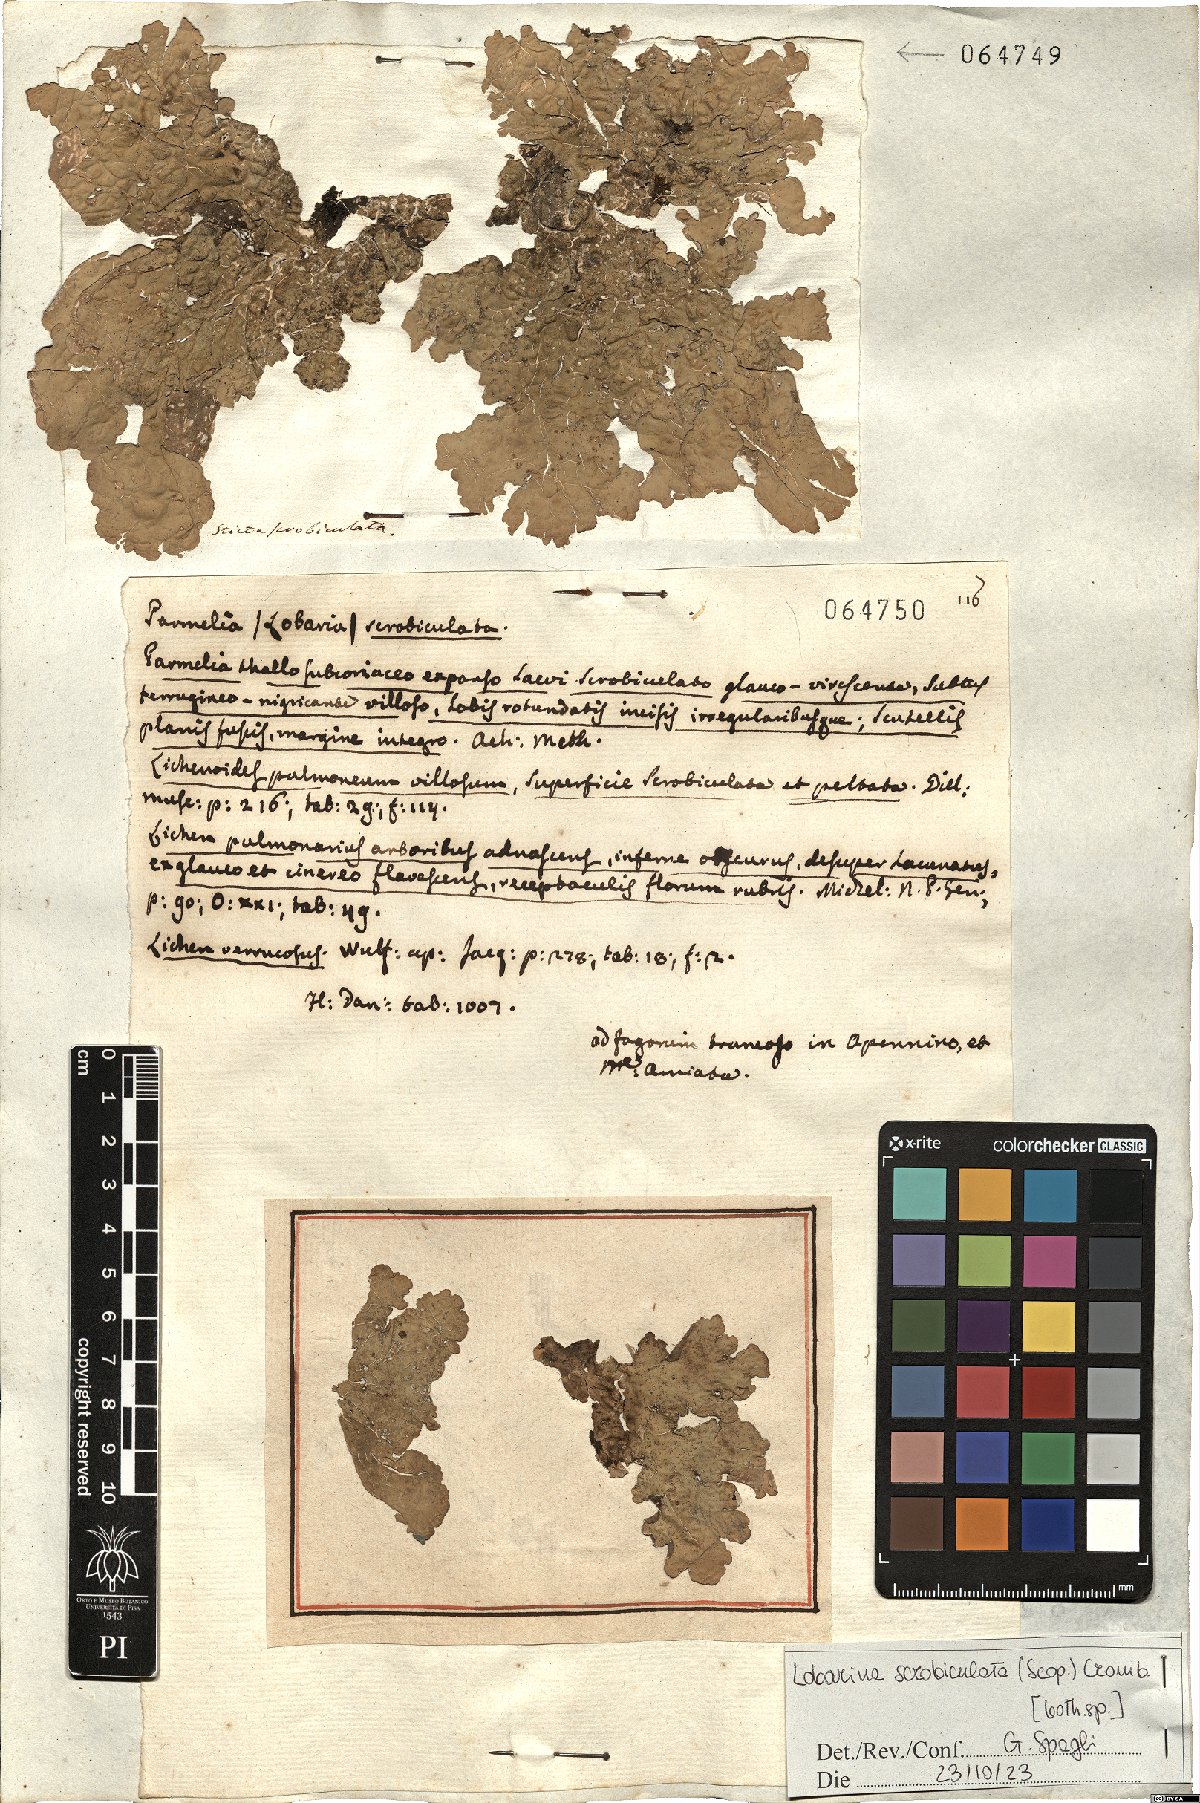 064749
Sticta scrobiculata.
064750
116
Parmelia /Lobaria/ scrobiculata.
Parmelia thallo subcoriaceo expanso laevi scrobiculato glauco-virescente, subtus
ferrugineo-nigricante villoso, lobis rotundatis incisis irregularibusque; scutellis
planis fuscis, margine integro. Ach: Meth.
Lichenoides pulmoneum villosum, superficie scrobiculata et peltata. Dill:
musc: p: 216; tab: 29; f: 114.
Lichen pulmonarius arboribus adnascens, inferne obscurus, desuper lacunatus,
ex glauco et cinereo flavescens, receptaculis florum rubris. Michel: N. P. Gen:
p: 90; O: xxi; tab: 49.
Lichen verrucosus. Wulf: ap: Jacq: p: 278; tab: 18; f: 2.
Fl: Dan: tab: 1007.
ad fagorum truncos in Apennino, et
Mte Amiata.
cm 0 1 2 3 4 5 6 7 8 9 10
copyright reserved
ORTO E MUSEO BOTANICO
UNIVERSITÀ DI PISA
1543
PI
x-rite colorchecker CLASSIC
mm
Lobarina scrobiculata (Scop.) Cromb.
[both sp.]
Det./Rev./Conf. G. Spagli
Die 23/10/23